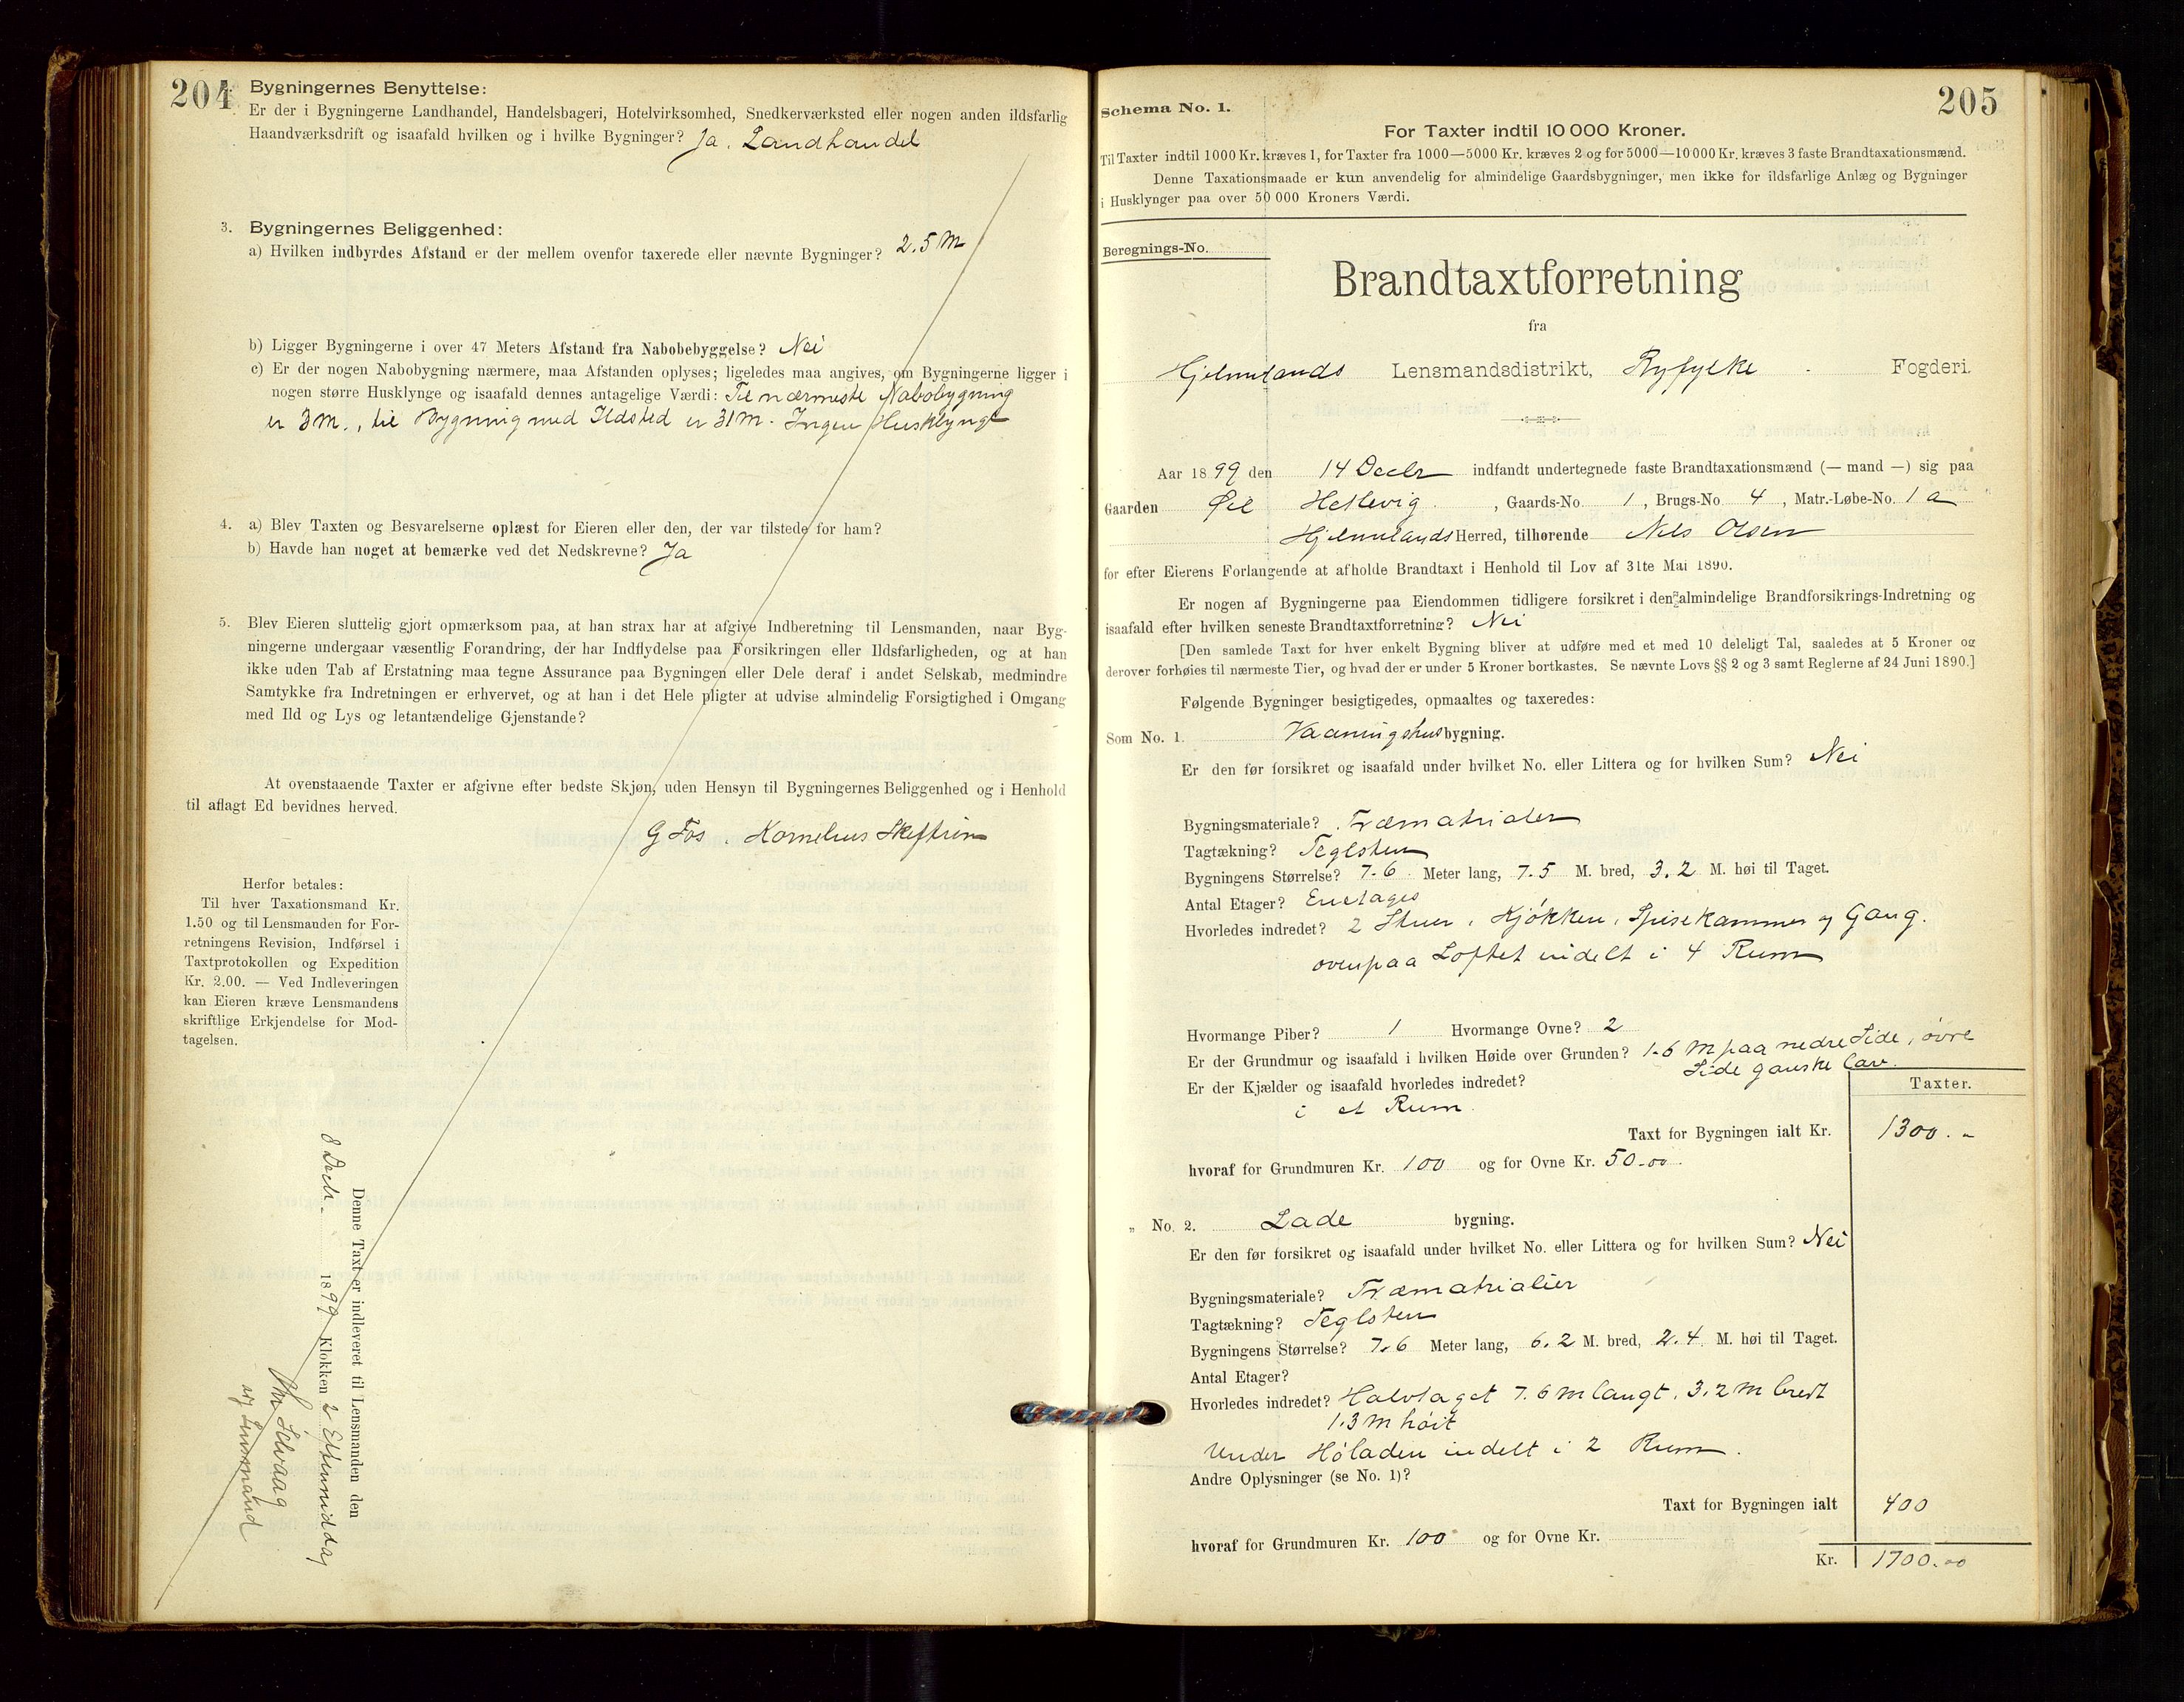 204
Bygningernes Benyttelse:
Er der i Bygningerne Landhandel, Handelsbageri, Hotelvirksomhed, Snedkerværksted eller nogen anden ildsfarlig
Haandværksdrift og isaafald hvilken og i hvilke Bygninger? Ja, Landhandel
3. Bygningernes Beliggenhed:
a) Hvilken indbyrdes Afstand er der mellem ovenfor taxerede eller nævnte Bygninger? 2.5 M
b) Ligger Bygningerne i over 47 Meters Afstand fra Nabobebyggelse? Nei
c) Er der nogen Nabobygning nærmere, maa Afstanden oplyses; ligeledes maa angives, om Bygningerne ligger i
nogen større Husklynge og isaafald dennes antagelige Værdi: Til nærmeste Nabobygning
er 3 M., til Bygning med Ildsted er 31 M. Ingen Husklynge
4. a) Blev Taxten og Besvarelserne oplæst for Eieren eller den, der var tilstede for ham?
b) Havde han noget at bemærke ved det Nedskrevne? Ja
5. Blev Eieren sluttelig gjort opmærksom paa, at han strax har at afgive Indberetning til Lensmanden, naar Byg-
ningerne undergaar væsentlig Forandring, der har Indflydelse paa Forsikringen eller Ildsfarligheden, og at han
ikke uden Tab af Erstatning maa tegne Assurance paa Bygningen eller Dele deraf i andet Selskab, medmindre
Samtykke fra Indretningen er erhvervet, og at han i det Hele pligter at udvise almindelig Forsigtighed i Omgang
med Ild og Lys og letantændelige Gjenstande?
At ovenstaaende Taxter er afgivne efter bedste Skjøn, uden Hensyn til Bygningernes Beliggenhed og i Henhold
til aflagt Ed bevidnes herved.
G Fos . Kornelius
Herfor betales:
Til hver Taxationsmand Kr.
1.50 og til Lensmanden for For-
retningens Revision, Indførsel i
Taxtprotokollen og Expedition
Kr. 2.00. — Ved Indleveringen
kan Eieren kræve Lensmandens
skriftlige Erkjendelse for Mod-
tagelsen.
Denne Taxt er indleveret til Lensmanden den
8 Decb. 1899 Klokken 2 Eftermiddag
Selvaag
Lensmand
205
Schema No. 1.
For Taxter indtil 10 000 Kroner.
Til Taxter indtil 1000 Kr. kræves 1, for Taxter fra 1000—5000 Kr. kræves 2 og for 5000—10 000 Kr. kræves 3 faste Brandtaxationsmænd.
Denne Taxationsmaade er kun anvendelig for almindelige Gaardsbygninger, men ikke for ildsfarlige Anlæg og Bygninger
i Husklynger paa over 50 000 Kroners Værdi.
Beregnings-No.
Brandtaxtforretning
fra
Hjelmelands Lensmandsdistrikt, Ryfylke Fogderi.
Aar 1899 den 14 Decbr indfandt undertegnede faste Brandtaxationsmænd (— mand —) sig paa
Gaarden Hellevig , Gaards-No. 1, Brugs-No. 4, Matr.-Løbe-No. 1 a
Hjelmelands Herred, tilhørende Nils Olsen
for efter Eierens Forlangende at afholde Brandtaxt i Henhold til Lov af 31te Mai 1890.
Er nogen af Bygningerne paa Eiendommen tidligere forsikret i den almindelige Brandforsikrings-Indretning og
isaafald efter hvilken seneste Brandtaxtforretning? Nei
[Den samlede Taxt for hver enkelt Bygning bliver at udføre med et med 10 deleligt Tal, saaledes at 5 Kroner og
derover forhøies til nærmeste Tier, og hvad der er under 5 Kroner bortkastes. Se nævnte Lovs §§ 2 og 3 samt Reglerne af 24 Juni 1890.]
Følgende Bygninger besigtigedes, opmaaltes og taxeredes:
Som No. 1. Vaaningshusbygning.
Er den før forsikret og isaafald under hvilket No. eller Littera og for hvilken Sum? Nei
Bygningsmateriale? Træmatrialer
Tagtækning? Teglsten
Bygningens Størrelse? 7.6 Meter lang, 7.5 M. bred, 3.2 M. høi til Taget.
Antal Etager? Enetages
Hvorledes indredet? 2 Stuer, Kjøkken, Spisekammer og Gang.
ovenpaa Loftet indelt i 4 Rum
Hvormange Piber? 1 Hvormange Ovne? 2
Er der Grundmur og isaafald i hvilken Høide over Grunden? 1.6 M paa nedre Side, øvre
Side ganske lav.
Er der Kjælder og isaafald hvorledes indredet?
i et Rum.
Taxter.
Taxt for Bygningen ialt Kr. 1300.-
hvoraf for Grundmuren Kr. 100 og for Ovne Kr. 50.00
" No. 2. Lade bygning.
Er den før forsikret og isaafald under hvilket No. eller Littera og for hvilken Sum? Nei
Bygningsmateriale? Træmatrialier
Tagtækning? Teglsten
Bygningens Størrelse? 7.6 Meter lang, 6.2 M. bred, 2.4 M. høi til Taget.
Antal Etager?
Hvorledes indredet? Halvtaget 7.6 M langt, 3.2 M bredt
1.3 M høit
Under Høladen indelt i 2 Rum.
Andre Oplysninger (se No. 1)?
Taxt for Bygningen ialt 400
hvoraf for Grundmuren Kr. 100 og for Ovne Kr.
Kr. 1700.00